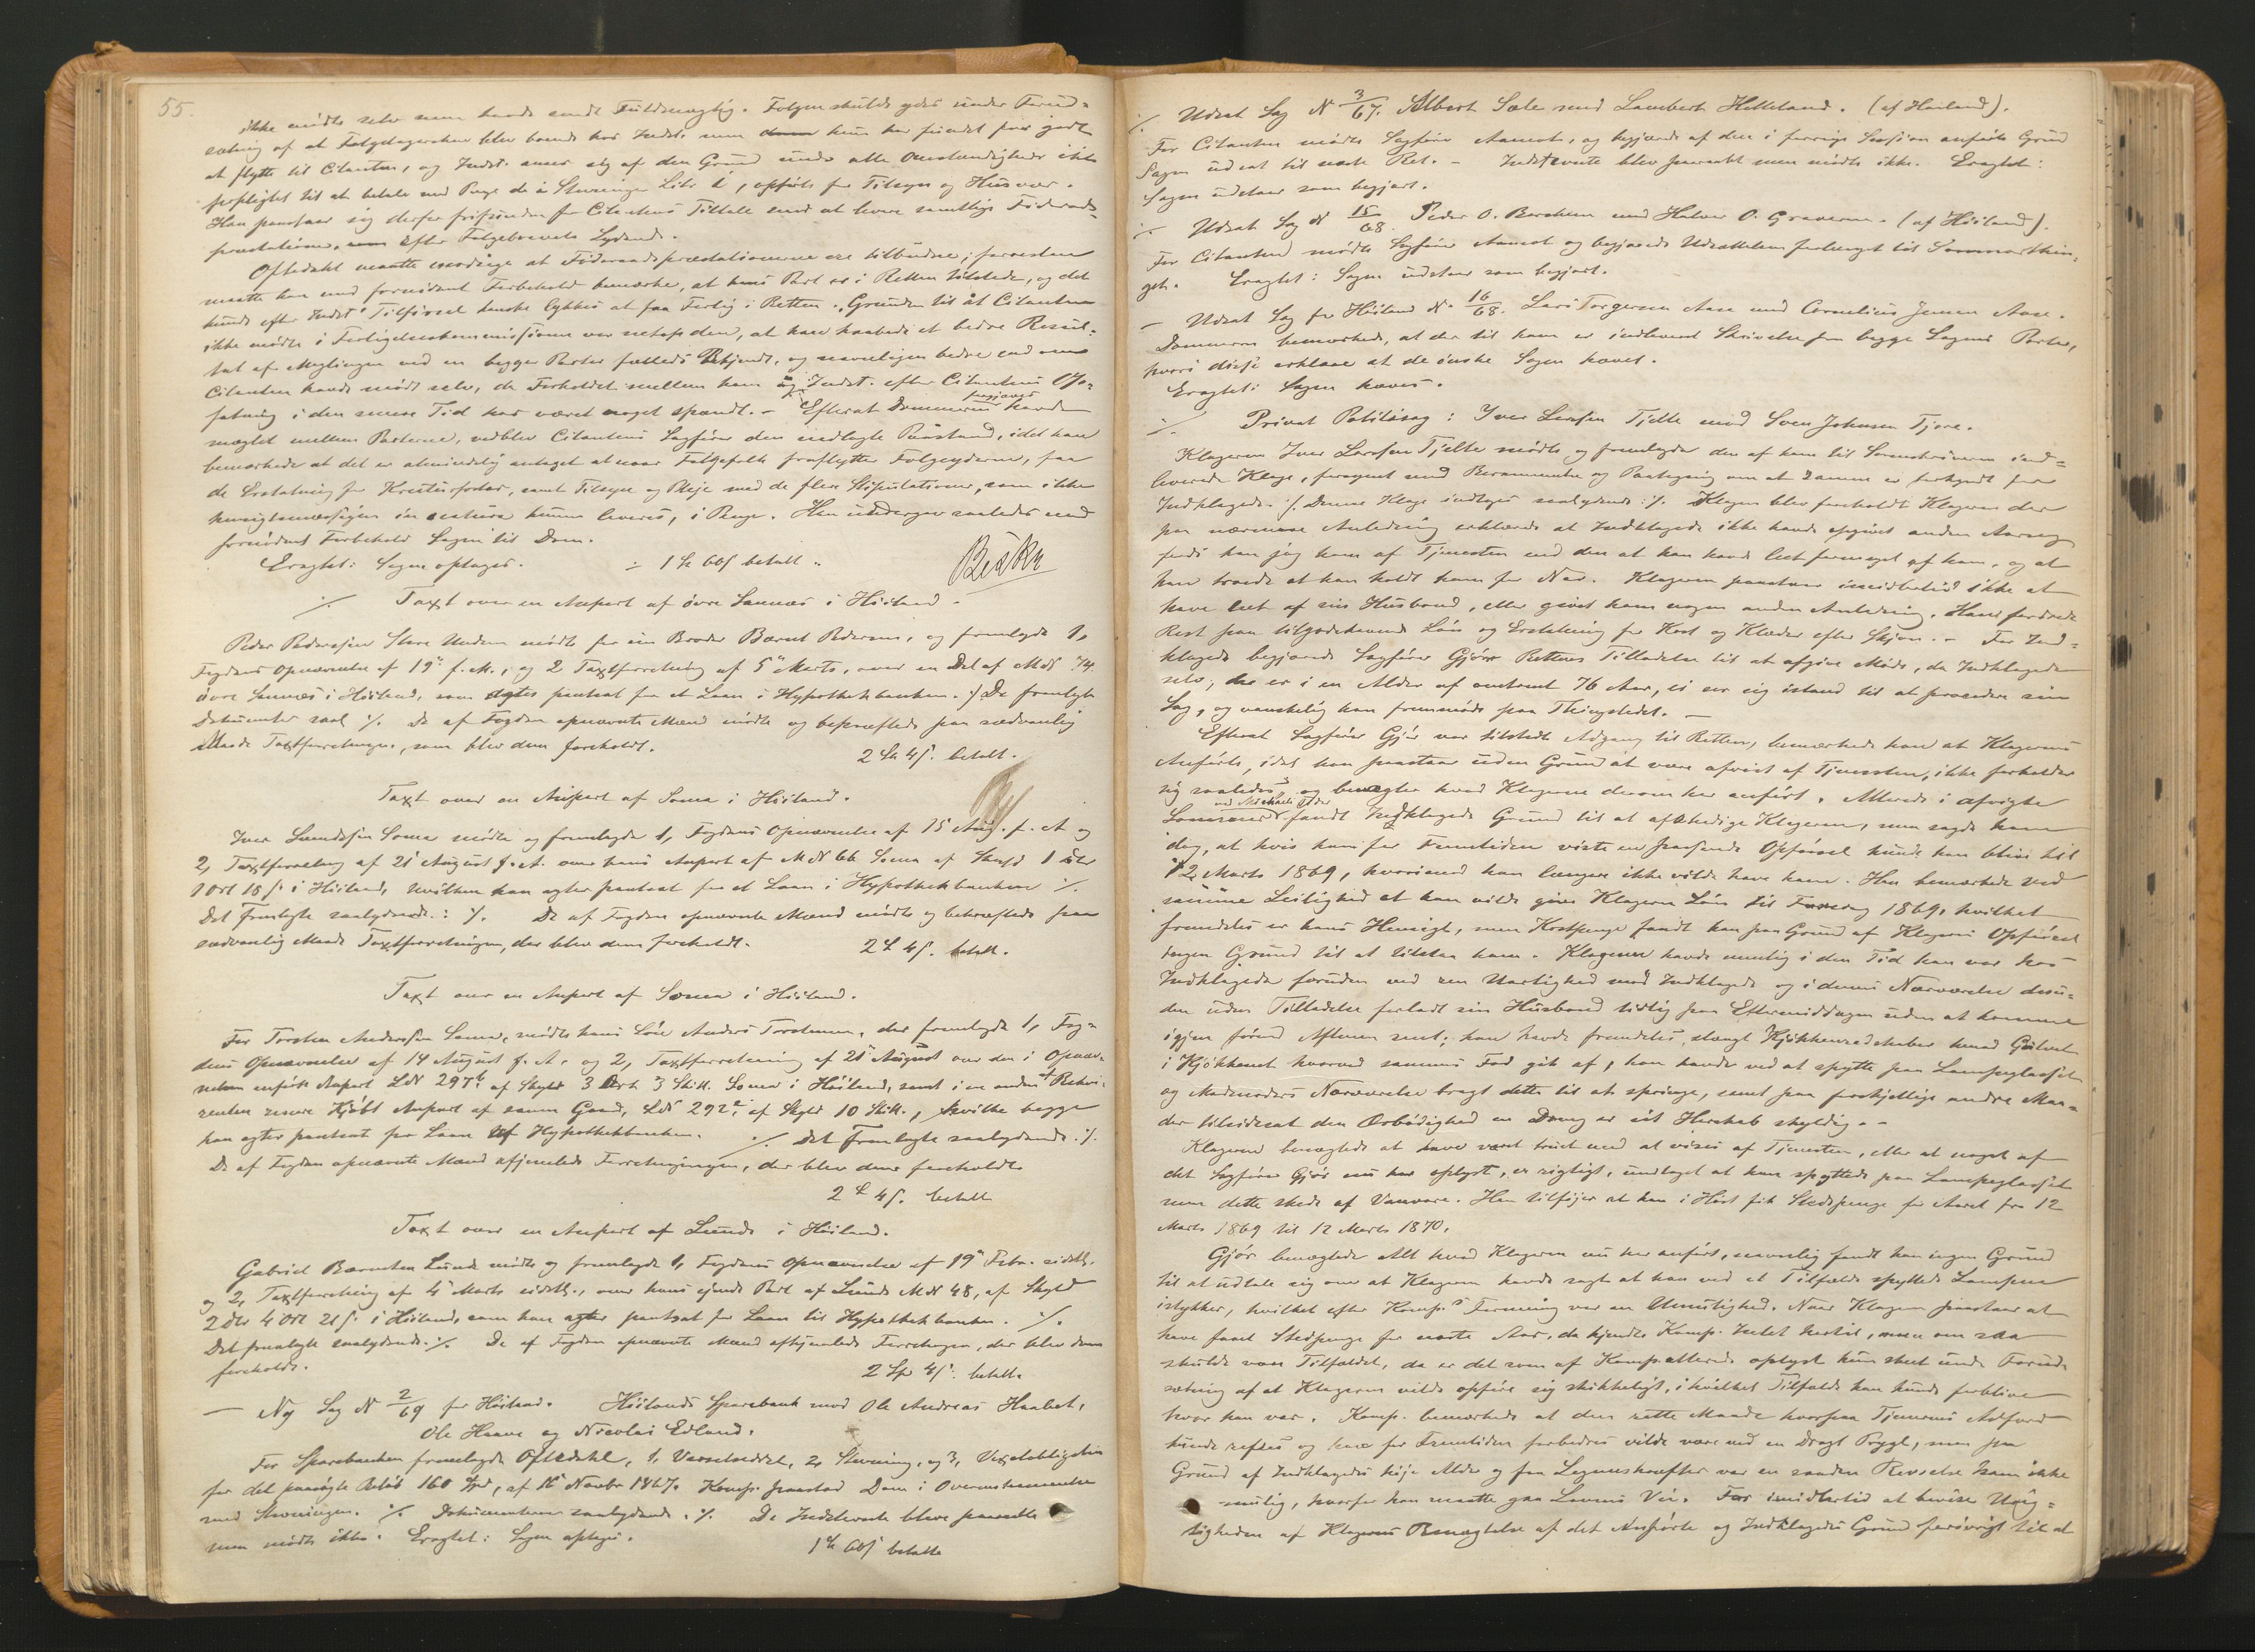 55.
ikke mødte selv men havde sendt Fuldmægtig. Følgen skulde ydes under Forud-
sætning af at Følgetagersken blev boende hos Indst. men hun har fundet for godt
at flytte til Citanten, og Indst. anser sig af den Grund under alle Omstændigheder ikke
forpligtet til at betale med Penge de i Stevningen Litr. opførte for Tilsyn og Husvær.
Han paastaar sig derfor frifunden for Citantens Tiltale mod at levere samtlige Føderaads-
præstationer, efter Følgebrevets Lydende.
Oftedahl maatte modsige at Føderaadspræstationerne ere tilbudne; forresten
maatte han med fornødent Forbehold bemærke, at hans Part er i Retten tilstede, og det
kunde efter Indst. Tilførsel kanske lykkes at faa Forlig i Retten. Grunden til at Citanten
ikke mødte i Forligelseskommissionen var netop den, at han haabede et bedre Resul-
tat af Meglingen ved en begge Parter fælleds Bekjendt, og navnligen bedre end om
Citanten havde mødt selv, da Forholdet mellem ham og Indst. efter Citantens Op-
fatning i den senere Tid har været noget spændt. - Efterat Dommeren forgjæves havde
mæglet mellem Parterne, vedblev Citantens Sagfører den nedlagte Paastand, idet han
bemærkede at det er almindelig antaget at naar Følgefolk fraflytter Følgeyderne, faa
de Erstatning for Kreaturfoder, samt Tilsyn og Pleje med de flere Stipulationer, som ikke
hensigtsmæssigen in natura kunne leveres, i Penge. Han undergav saaledes med
fornødent Forbehold Sagen til Dom.
Eragtet: Sagen optages. 1 Sp 60 s betalt.
Taxt over en Anpart af øvre Sannæs i Høiland.
Peder Pedersen Store Undem mødte for sin Broder Bærnt Pedersen, og fremlagde 1,
Fogdens Opnævnelse af 19de f. M., og 2 Taxtforretning af 5te Marts, over en Del af M No 74
øvre Sannæs i Høiland, som agtes pantsat for et Laan i Hypothekbanken. De fremlagte
Dokumenter saal. De af Fogden opnævnte Mænd mødte og bekræftede paa sædvanlig
Maade Taxtforretningen, som blev dem foreholdt.
2 Sp 4 s. betalt.
Taxt over en Anpart af Soma i Høiland.
Iver Svendsen Soma mødte og fremlagde 1, Fogdens Opnævnelse af 15 Aug. f. A. og
2, Taxtforretning af 21 August f. A. over hans Anpart af M No 66 Soma af Skyld 1 Dlr
1 Ort 18 s i Høiland, hvilken han agter pantsat for et Laan i Hypothekbanken
Det fremlagte saalydende: De af Fogden opnævnte Mænd mødte og bekræftede paa
sædvanlig Maade Taxtforretningen, der blev dem foreholdt. 2 Sp 4 s. betalt.
Taxt over en Anpart af Soma i Høiland.
For Torsten Andersen Soma, mødte hans Søn Anders Torstensen, der fremlagde 1, Fog-
dens Opnævnelse af 14 August f. A. og 2, Taxtforretning af 21 August over den i Opnæv-
nelsen anførte Anpart L No 297b, af Skyld 3 Ort 3 Skill. Soma i Høiland, samt i en anden af Rekvi-
renten senere kjøbt Anpart af samme Gaard, L No 292, af Skyld 10 Skill., hvilke begge
han agter pantsat for Laan af Hypothekbanken. Det fremlagte saalydende:
De af Fogden opnævnte Mænd afhjemlede Forretningen, der blev dem foreholdt
2 Sp 4 s. betalt
Taxt over en Anpart af Lunde i Høiland.
Gabriel Bærntsen Lunde mødte og fremlagde 1, Fogdens Opnævnelse af 19de Febr. sidstl.
og 2, Taxtforretning af 4 Marts sidstl., over hans ejende Part af Lunde M No 48, af Skyld
2 Dlr 4 Ort 21 s. i Høiland, som han agter pantsat for Laan til Hypothekbanken.
Det fremlagte saalydende. De af Fogden opnævnte Mænd afhjemlede Forretningen, der blev dem
foreholdt. 2 Sp 4 s. betalt.
Ny Sag No 2/69 for Høiland. Høilands Sparebank mod Ole Andreas Haabet,
Ole Haave og Nicolai Edland.
For Sparebanken fremlagde Oftedahl, 1, Varselseddel, 2, Stevning, og 3, Vexelobligation
for det paasøgte Beløb 160 Spd, af 16 Novbr 1867. Komp. paastod Dom i Overensstemmelse
med Stevningen. Dokumenterne saalydende. De Indstevnte bleve paaraabte
men mødte ikke. Eragtet: Sagen optages. 1 Sp 60 s betalt
Udsat Sag No 3/67. Albert Sæle mod Lambert Hetteland. (af Høiland).
For Citanten mødte Sagfører Aamot, og begjærede af den i forrige Session anførte Grund
Sagen udsat til næste Ret. - Indstevnte blev paaraabt men mødte ikke. Eragtet:
Sagen udstaar som begjært.
Udsat Sag No 15/68. Peder O. Berchem mod Halvor O. Graverm. (af Høiland).
For Citanten mødte Sagfører Aamot og begjærede Udsættelsen forlænget til Sommerthin-
get. Eragtet: Sagen udstaar som begjært.
Udsat Sag for Høiland No 16/68. Lars Torgersen Aase mod Cornelius Jensen Aase.
Dommeren bemærkede, at der til ham er indleveret Skrivelse fra begge Sagens Parter,
hvori disse erklære at de ønske Sagen hævet.
Eragtet: Sagen hæves.
Privat Politisag: Iver Larsen Tjelte mod Sven Johnsen Tjore.
Klageren Iver Larsen Tjelte mødte og fremlagde den af ham til Sorenskriveren ind-
leverede Klage, forsynet med Berammelse og Paategning om at samme er forkyndt for
Indklagede. Denne Klage indtages saalydende: Klagen blev foreholdt Klageren der
paa nærmere Anledning erklærede at Indklagede ikke havde opgivet anden Aarsag
fordi han jog ham af Tjenesten end den at han havde leet formeget af ham, og at
han troede at han holdt ham for Nar. Klageren paastaar imidlertid ikke at
have leet af sin Husbond, eller givet ham nogen anden Anledning. Han fordrede
Rest paa tilgodehavende Løn og Erstatning for Kost og Klæder efter Skjøn. - For Ind-
klagede begjærede Sagfører Gjør Rettens Tilladelse til at afgive Møde, da Indklagede
selv, der er i en Alder af omtrent 76 Aar, ei ser sig istand til at procedere sin
Sag, og vanskelig kan fremmøde paa Thingstedet. -
Efterat Sagfører Gjør var tilstedt Adgang til Retten, bemærkede han at Klagerens
Anførte, idet han paastaar uden Grund at være afvist af Tjenesten, ikke forholder
sig saaledes, og benægter hvad Klageren derom har anført. Allerede i afvigte
Sommer ved Michaeli Tider fandt Indklagede Grund til at afskedige Klageren, men sagde ham
dog, at hvis han for Fremtiden viste en passende Opførsel kunde han blive til
12 Marts 1869, hvorimod han længere ikke vilde have ham. Han bemærkede ved
samme Leilighed at han vilde give Klageren Løn til Faredag 1869, hvilket
fremdeles er hans Hensigt, men Kostpenge fandt han paa Grund af Klagerens Opførsel
ingen Grund til at tilstaa ham. Klageren havde nemlig i den Tid han var hos
Indklagede foruden ved sin Uartighed mod Indklagede og i dennes Nærværelse desu-
den uden Tilladelse forladt sin Husbond tidlig paa Eftermiddagen uden at komme
igjen førend Aftenen sent; han havde fremdeles slængt Kjøkkenredskaber henad Gulvet
i Kjøkkenet hvorved sammes Fod gik af, han havde ved at spytte paa Lampeglasset
og Madmoders Nærværelse bragt dette til at springe, samt paa forskjellige andre Maa-
der tilsidesat den Ærbødighed en Dreng er sit Herskab skyldig. -
Klageren benægtede at have været truet med at vises af Tjenesten, eller at noget af
det Sagfører Gjør nu har oplyst, er rigtigt, undtaget at han spyttede paa Lampeglasset
men dette skede af Vanvare. Han tilføjer at han i Høst fik Stedspenge for Aaret fra 12
Marts 1869 til 12 Marts 1870.
Gjør benægtede Alt hvad Klageren nu har anført, navnlig fandt han ingen Grund
til at udtale sig om at Klageren havde sagt at han ved et Tilfælde spyttede Lampen
istykker, hvilket efter Komp.s Formening var en Umulighed. Naar Klageren paastaar at
have faaet Stedspenge for næste Aar, da kjendte Komp. Intet hertil, men om saa
skulde være Tilfældet, da er det som af Komp. allerede oplyst kun skeet under Forud-
sætning af at Klageren vilde opføre sig skikkeligt, i hvilket Tilfælde han kunde forblive
hvor han var. Komp. bemærkede at den rette Maade hvorpaa Tjenerens Adfærd
kunde refses og han for Fremtiden forbedres vilde være ved en Dragt Prygl, men paa
Grund af Indklagedes høje Alder og faa Legemskræfter var en saadan Revselse ham ikke
mulig, hvorfor han maatte gaa Lovens Vei. For imidlertid at bevise Urig-
tigheden af Klagerens Benægtelse af det Anførte og Indklagedes Grund forøvrigt til at